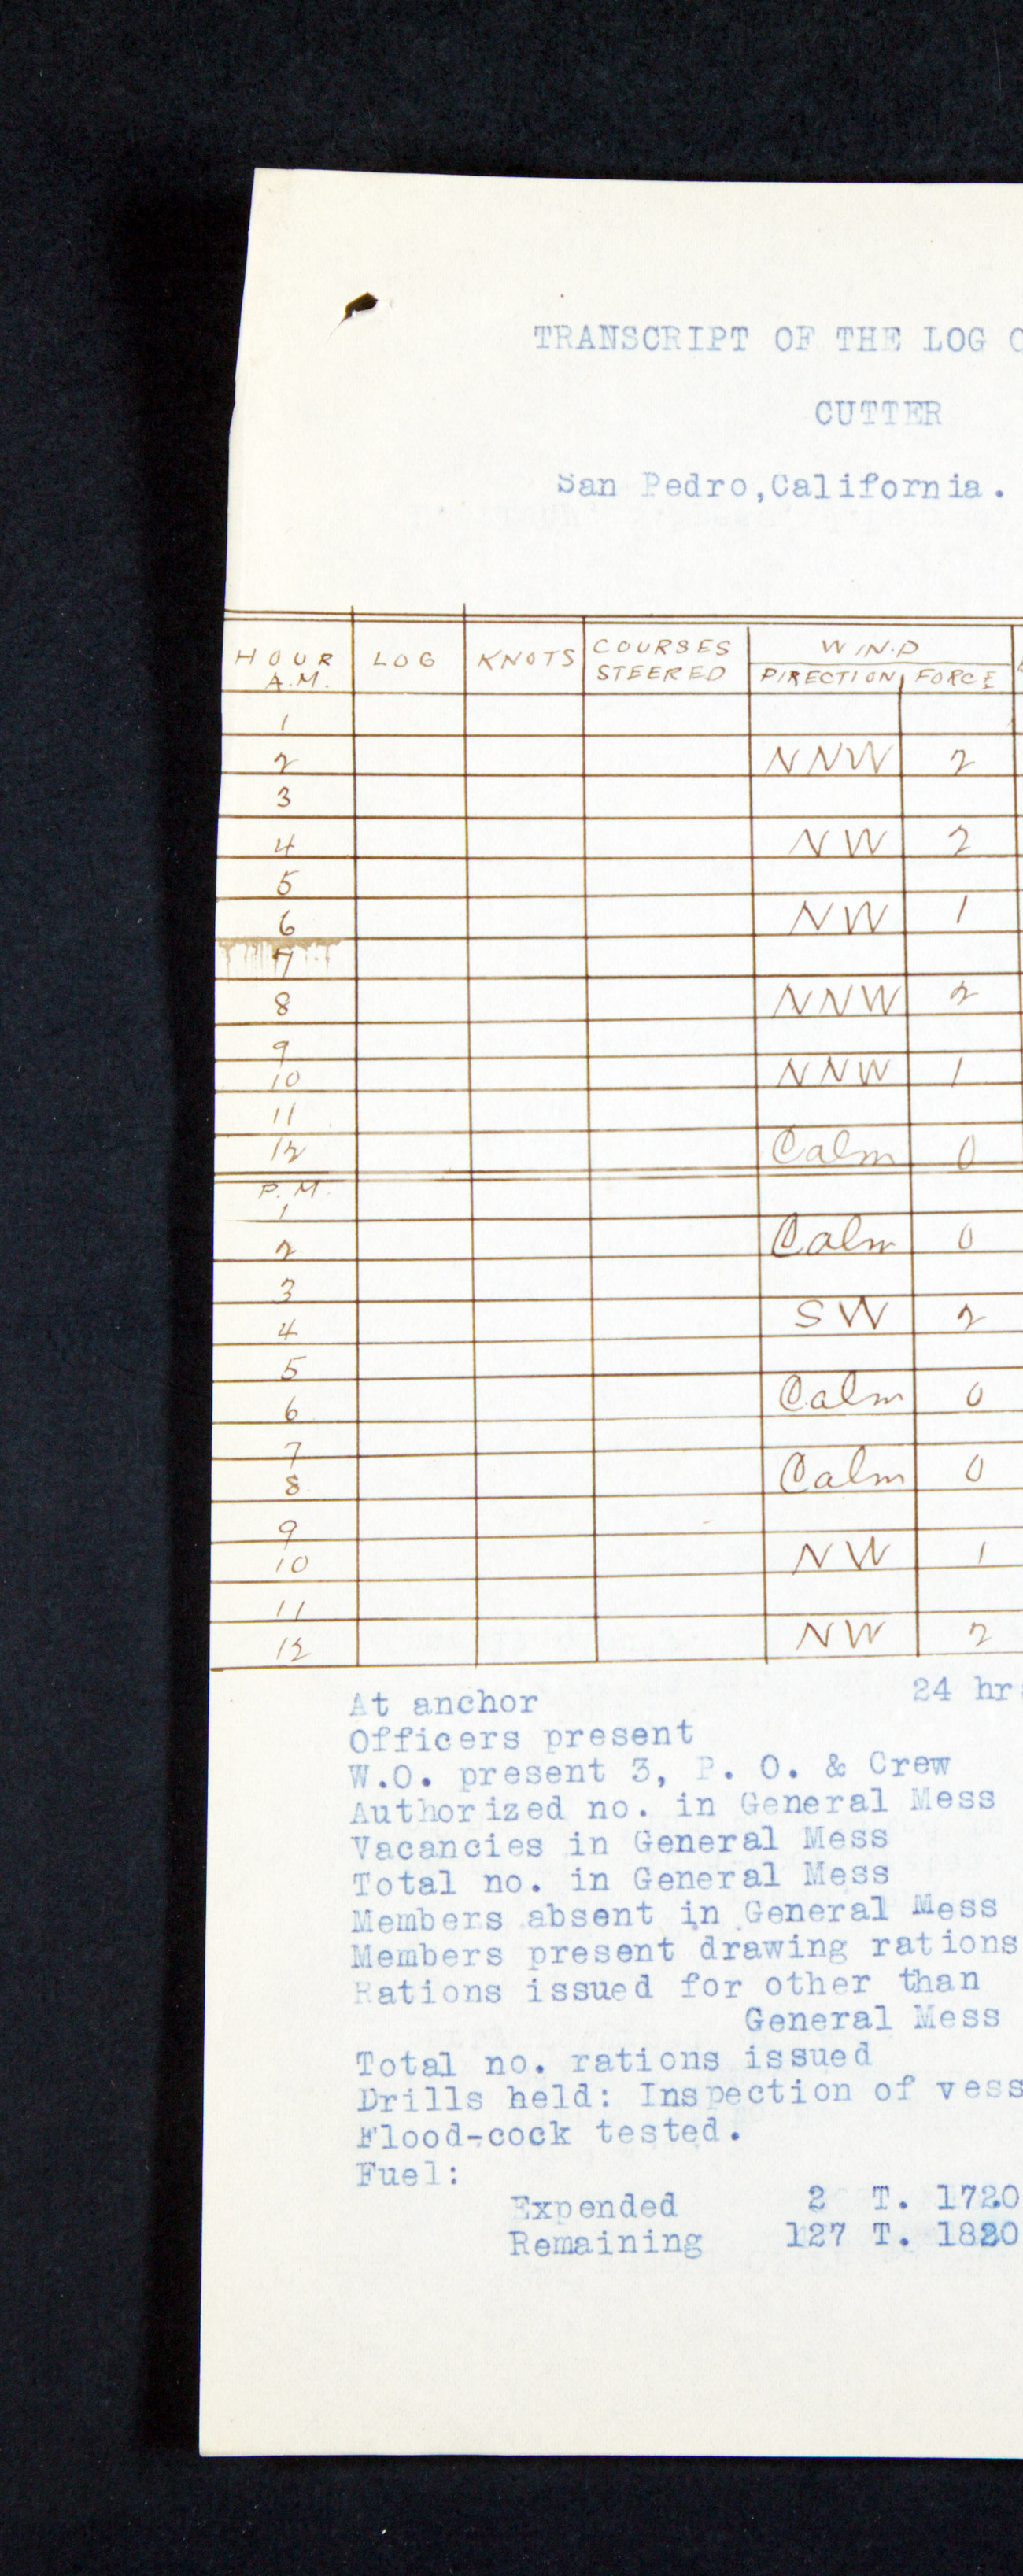 TRANSCRIPT OF THE LOG
CUTTER
San Pedro,California.
HOUR LOG KNOTS COURSES STEERED WIND
A.M. DIRECTION FORCE
1
2 NNW 2
3
4 NW 2
5
6 NW 1
7
8 NNW 2
9
10 NNW 1
11
12 Calm 0
P.M.
1
2 Calm 0
3
4 SW 2
5
6 Calm 0
7
8 Calm 0
9
10 NW 1
11
12 NW 2
At anchor 24 hr
Officers present
W.O. present 3, P. O. & Crew
Authorized no. in General Mess
Vacancies in General Mess
Total no. in General Mess
Members absent in General Mess
Members present drawing rations
Rations issued for other than
General Mess
Total no. rations issued
Drills held: Inspection of vess
Flood-cock tested.
Fuel:
Expended 2 T. 1720
Remaining 127 T. 1820